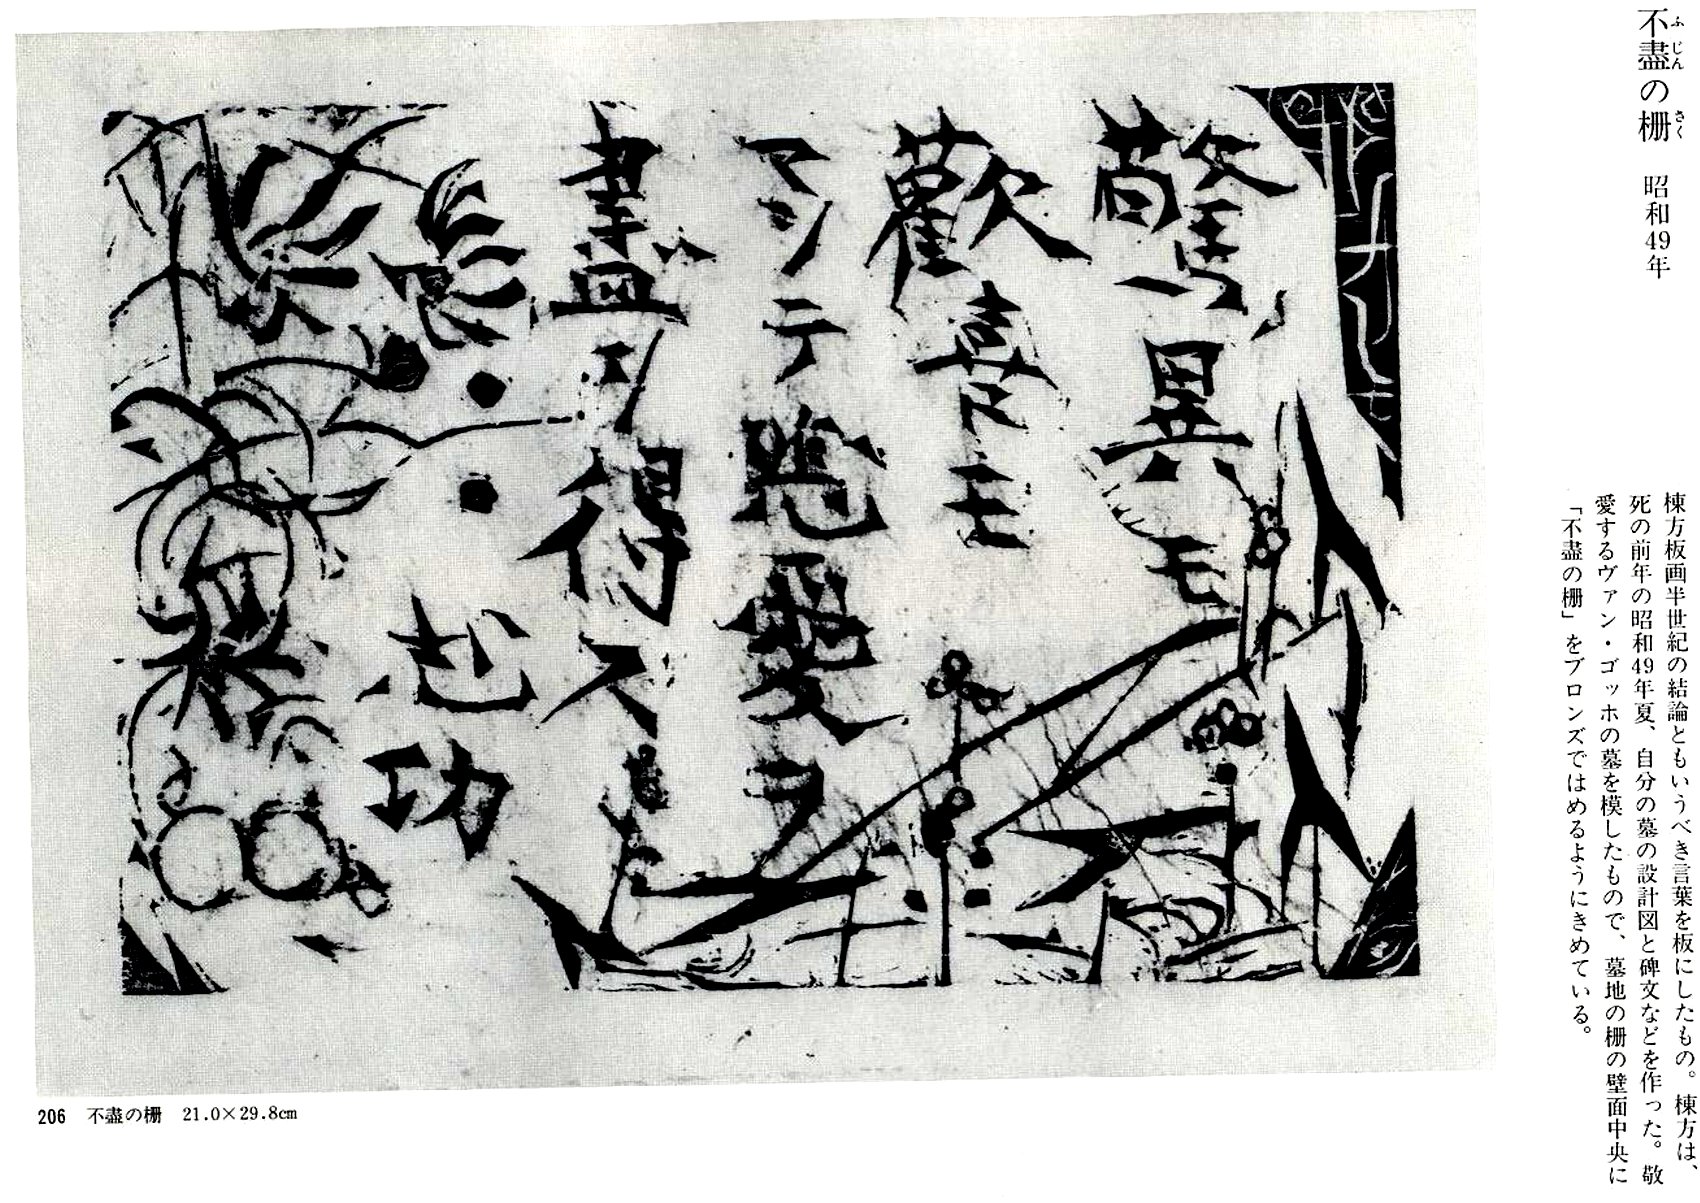 不盡の柵 昭和49年
ふじん さく
棟方板画半世紀の結論ともいうべき言葉を板にしたもの。棟方は、
死の前年の昭和49年夏、自分の墓の設計図と碑文などを作った。敬
愛するヴァン・ゴッホの墓を模したもので、墓地の柵の壁面中央に
「不盡の柵」をブロンズではめるようにきめている。
驚異モ
歡喜モ
マシテ悲愛ヲ
盡シ得ス
志功
206 不盡の柵 21.0×29.8cm